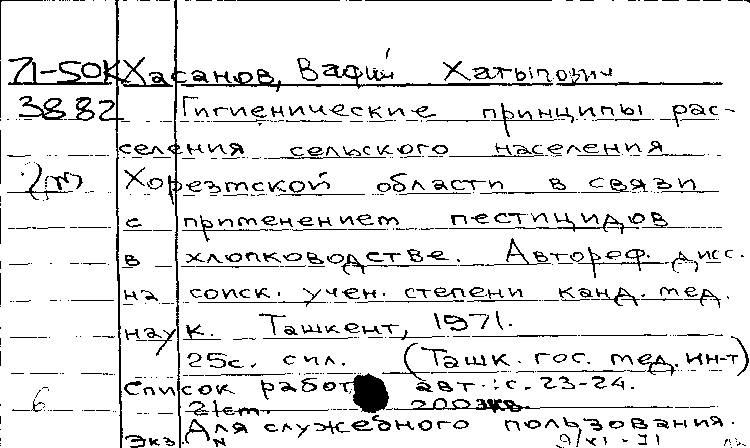 71-50К Хасанов, Вафий Хатыпович
3882 Гигиенические принципы рас-
селения сельского населения
2m Хорезмской области в связи
с применением пестицидов
в хлопководстве. Автореф. дисс.
на соиск. учен. степени канд. мед.
наук. Ташкент, 1971.
25с. с ил. (Ташк. гос. мед. ин-т)
6 Список работ авт.: с. 23-24.
21см. 200экз.
Для служебного пользования.
Экз. N